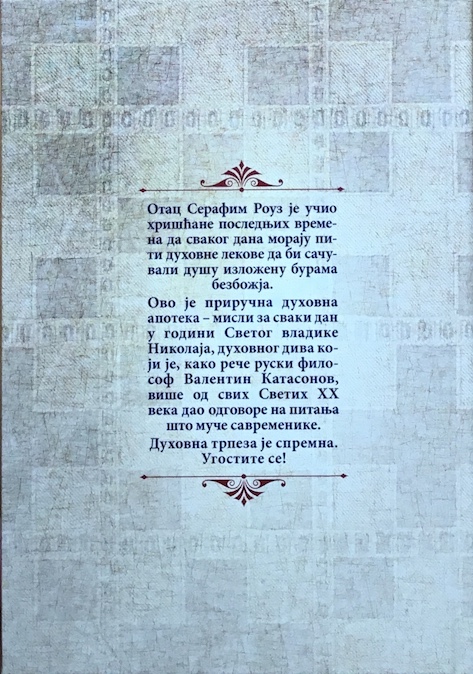 Отац Серафим Роуз је учио
хришћане последњих време-
на да сваког дана морају пи-
ти духовне лекове да би сачу-
вали душу изложену бурама
безбожја.
Ово је приручна духовна
апотека – мисли за сваки дан
у години Светог владике
Николаја, духовног дива ко-
ји је, како рече руски фило-
соф Валентин Катасонов,
више од свих Светих XX
века дао одговоре на питања
што муче савременике.
Духовна трпеза је спремна.
Угостите се!